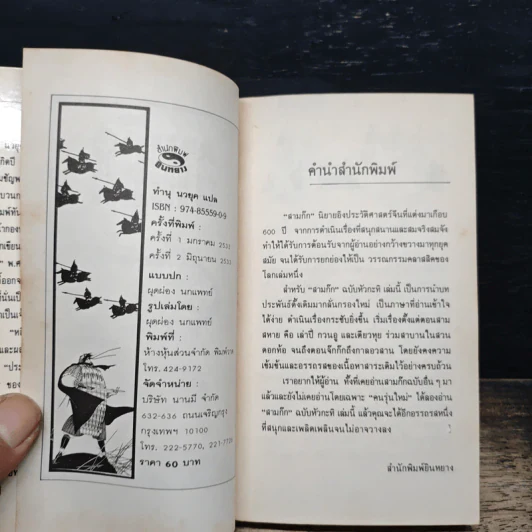 สำนักพิมพ์
ยินหยาง
ทำนุ นวยุค แปล
ISBN : 974-85559-0-9
ครั้งที่พิมพ์ :
ครั้งที่ 1 มกราคม
ครั้งที่ 2 มิถุนายน
แบบปก :
ผุดผ่อง นกแพทย์
รูปเล่มโดย :
ผุดผ่อง นกแพทย์
พิมพ์ที่ :
ห้างหุ้นส่วนจำกัด
โทร. 424-9172
จัดจำหน่าย :
บริษัท นานมี จำกัด
632-636 ถนนเจริญกรุง
กรุงเทพฯ 10100
โทร. 222-5770,
ราคา 60 บาท
คำนำสำนักพิมพ์
"สามก๊ก" นิยายอิงประวัติศาสตร์จีนที่แต่งมาเกือบ
600 ปี จากการดำเนินเรื่องที่สนุกสนานและสมจริงสมจัง
ทำให้ได้รับการต้อนรับจากผู้อ่านอย่างกว้างขวางมาทุกยุค
สมัย จนได้รับการยกย่องให้เป็น วรรณกรรมคลาสสิคของ
โลกเล่มหนึ่ง
สำหรับ "สามก๊ก" ฉบับหัวกะทิ เล่มนี้ เป็นการนำบท
ประพันธ์ดั้งเดิมมากลั่นกรองใหม่ เป็นภาษาที่อ่านเข้าใจ
ได้ง่าย ดำเนินเรื่องกระชับยิ่งขึ้น เริ่มเรื่องตั้งแต่ตอนสาม
สหาย คือ เล่าปี่ กวนอู และเตียวหุย ร่วมสาบานในสวน
ดอกท้อ จนถึงตอนจ๊กก๊กถึงกาลอวสาน โดยยังคงความ
เข้มข้นและอรรถรสของเนื้อหาสาระเดิมไว้อย่างครบถ้วน
เราอยากให้ผู้อ่าน ทั้งที่เคยอ่านสามก๊กฉบับอื่น ๆ มา
แล้วและยังไม่เคยอ่านโดยเฉพาะ "คนรุ่นใหม่" ได้ลองอ่าน
"สามก๊ก" ฉบับหัวกะทิ เล่มนี้ แล้วคุณจะได้อีกอรรถรสหนึ่ง
ที่สนุกและเพลิดเพลินจนไม่อาจวางลง
สำนักพิมพ์ยินหยาง